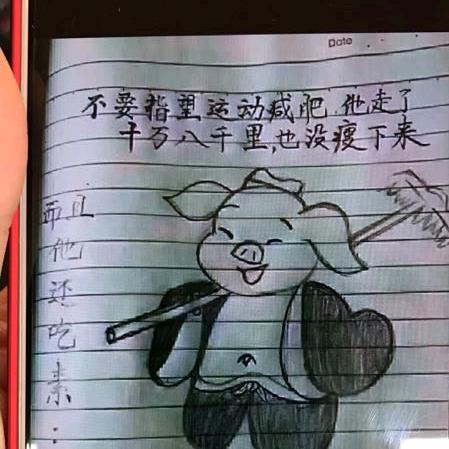 Date
不要指望运动减肥,他走了
十万八千里,也没瘦下来
而且
他
还
吃
素
: